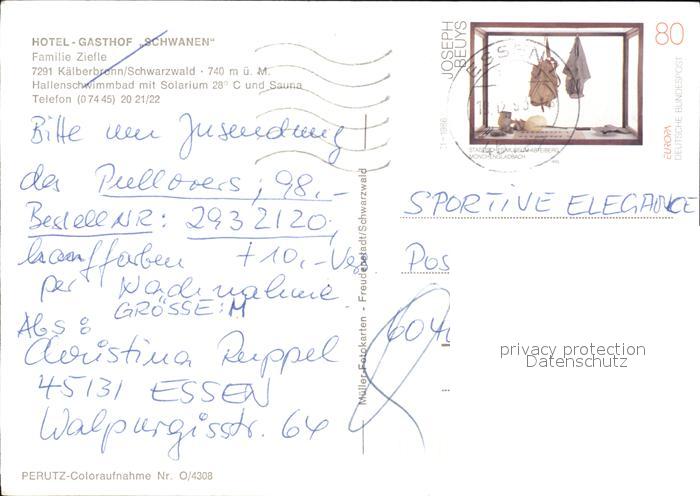 HOTEL - GASTHOF „SCHWANEN"
Familie Ziefle
7291 Kälberbronn/Schwarzwald · 740 m ü. M.
Hallenschwimmbad mit Solarium 28° C und Sauna
Telefon (0 74 45) 20 21/22
Bitte um Zusendung
des Pullovers, 98,-
Bestell NR: 2932120,
hanffarben +10,-
per Nachnahme
GRÖSSE: M
Abs:
Christina Ruppel
45131 ESSEN
Walpurgisstr. 64
PERUTZ-Coloraufnahme Nr. O/4308
Müller-Fotokarten - Freudenstadt/Schwarzwald
JOSEPH
BEUYS
80
ESSEN
STÄDTISCHES MUSEUM ABTEIBERG
MÖNCHENGLADBACH
EUROPA
DEUTSCHE BUNDESPOST
SPORTIVE ELEGANCE
Pos
604
privacy protection
Datenschutz